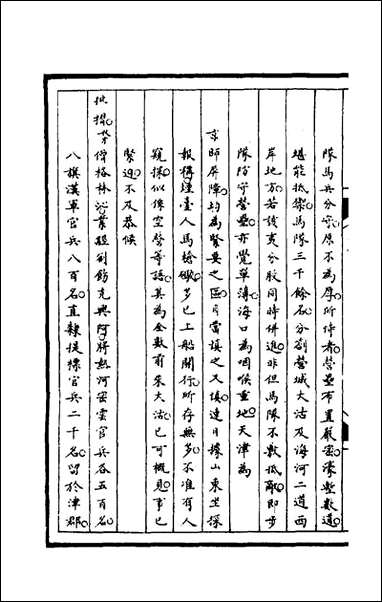 隊馬兵分守原不為厚所恃者營壘布置嚴密濠塹數道
堪能抵禦馬隊三千餘名分劄營城大沽及海河二道西
岸地方若該夷分股同時併進非但馬隊不敷抵敵即步
隊防守營壘亦覺單薄海口為咽喉重地天津為
京師屏障均為緊要之區自當慎之又慎連日據山東坐探
報稱煙臺人馬槍礮多已上船開行所存無多不准有人
窺探似像空營等語其為全數前來大沽已可概見事已
緊迫不及恭候
批摺僧格林沁業經劄飭克興阿將熱河密雲官兵各五百名
八旗漢軍官兵八百名直隸提標官兵二千名留於津郡